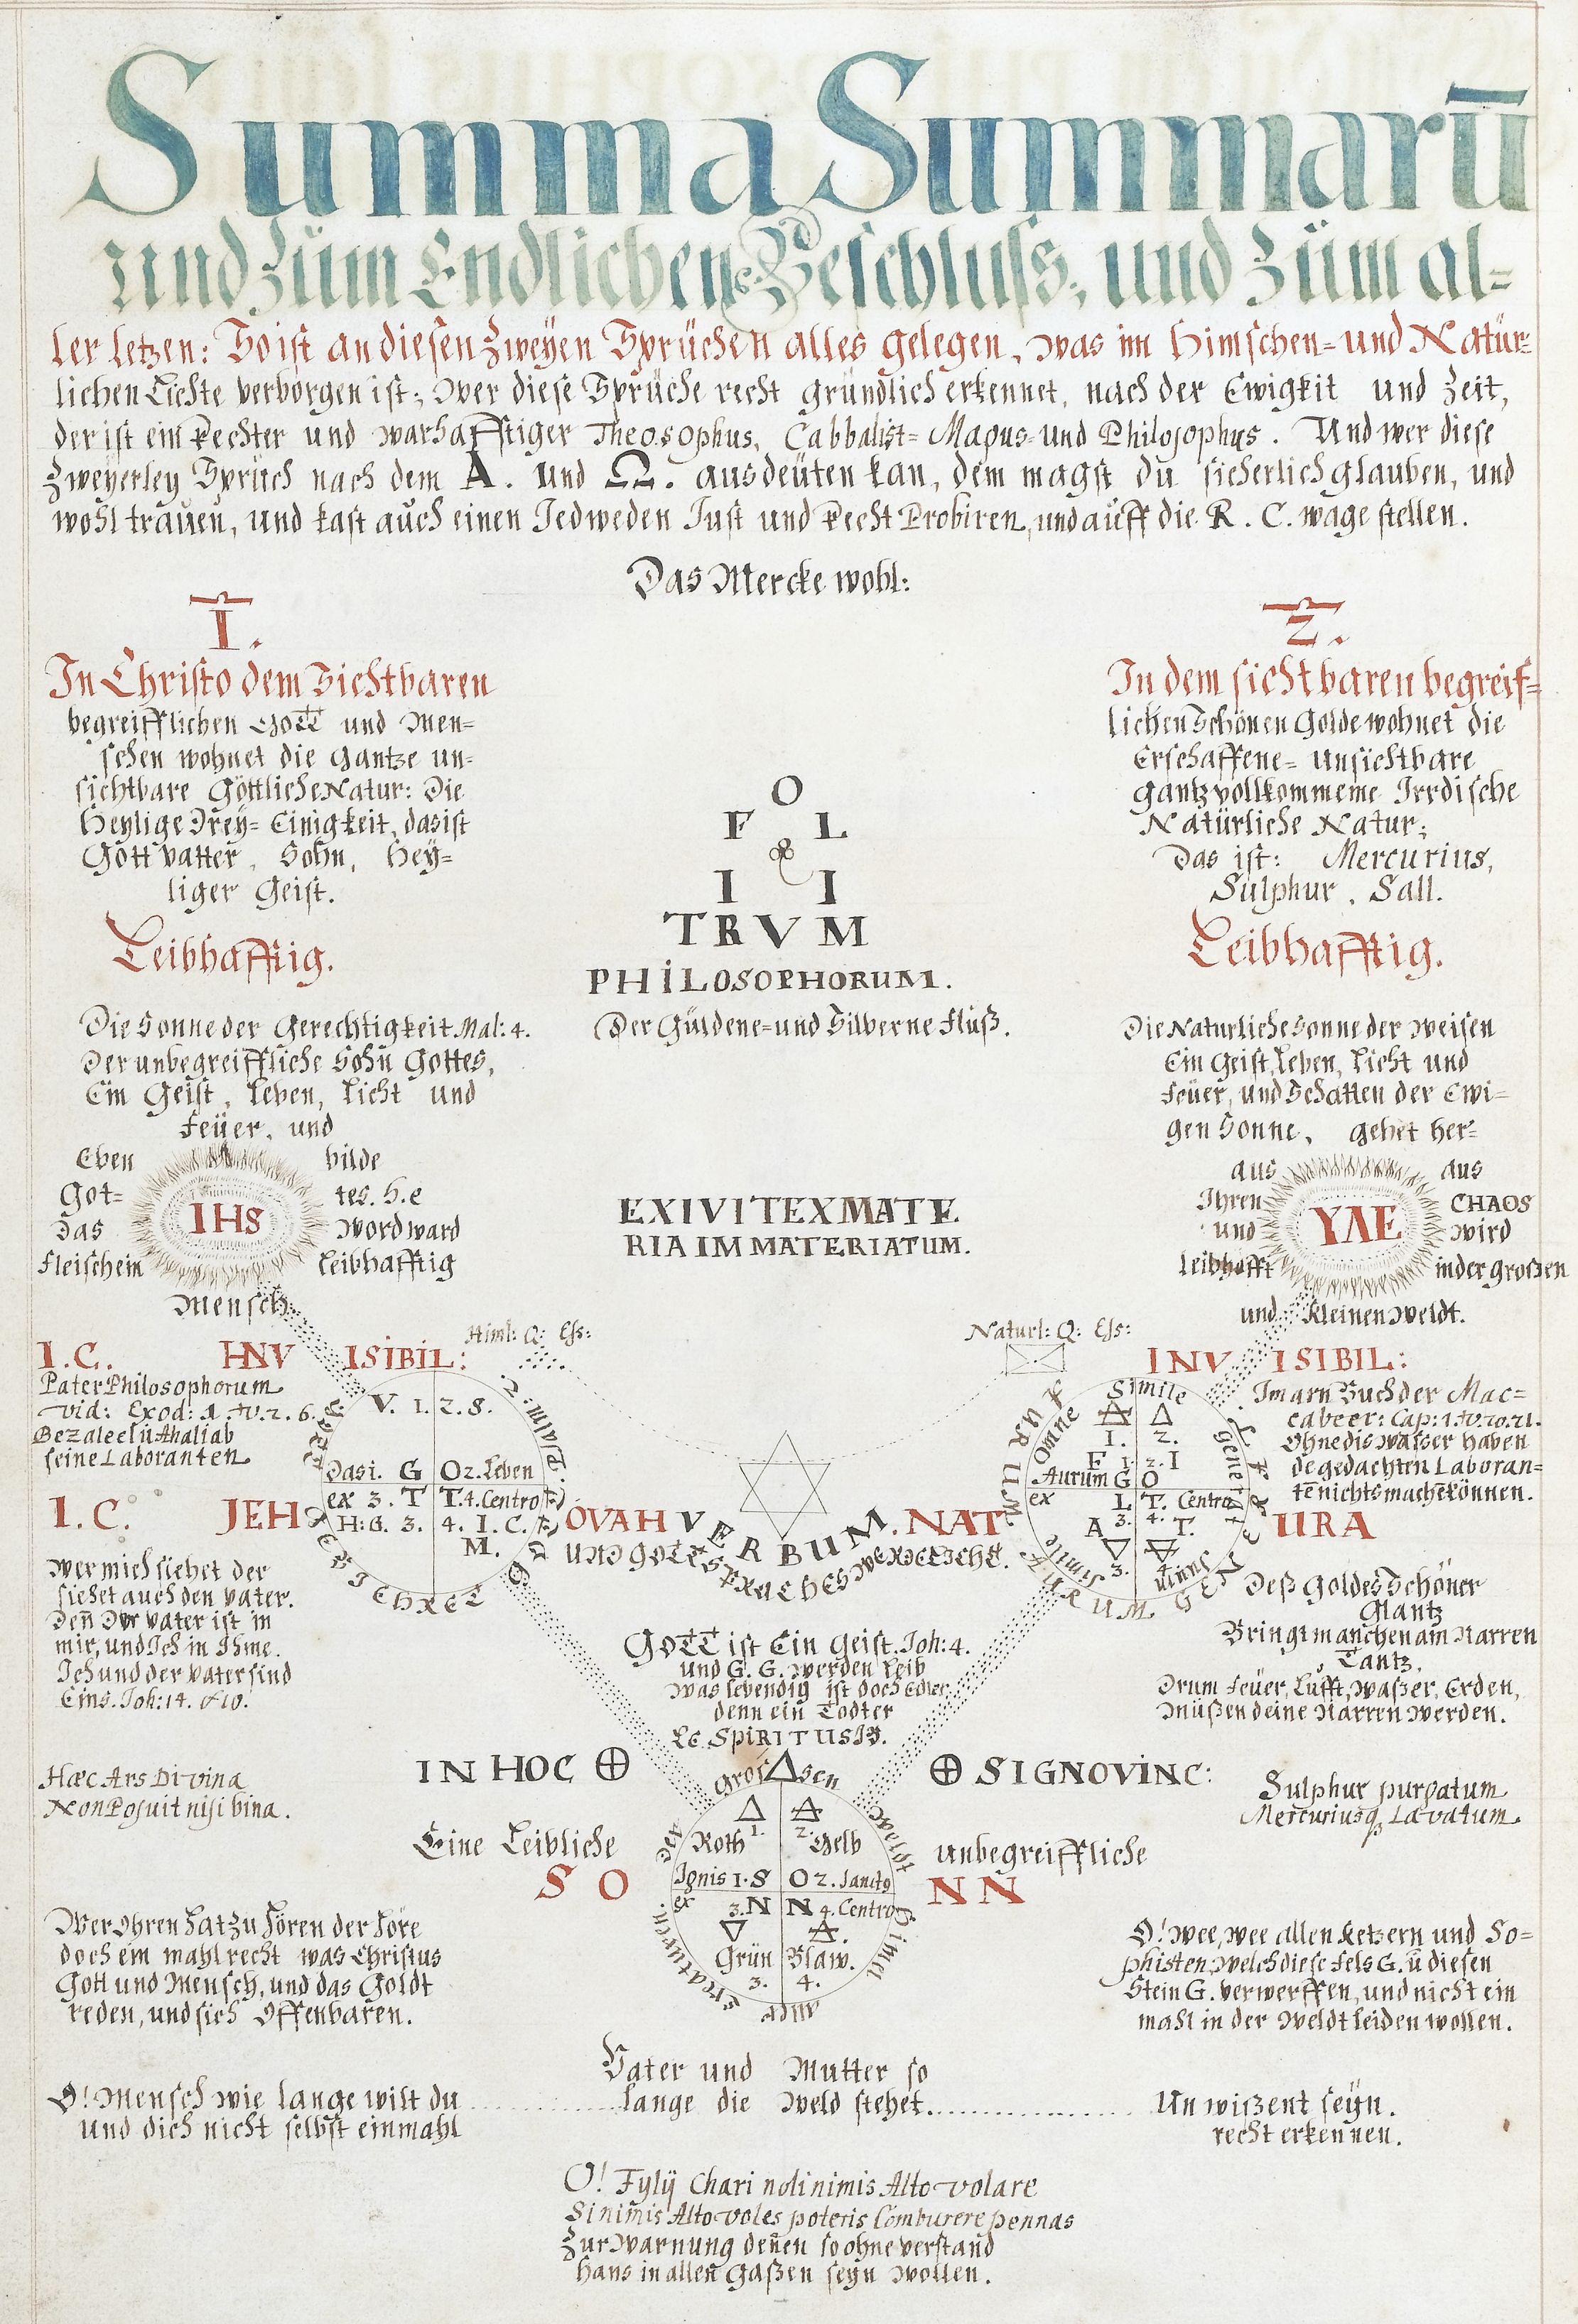 Summa Summarū
und Züm Endlichen Beschluss, und Züm al-
ler letzen: So ist an diesen Zweÿen Sprüchen alles gelegen, was im Himschen- und Natür-
lichen Lichte verborgen ist; Wer diese Sprüche recht gründlich erkennet, nach der Ewigkit und Zeit,
der ist ein Rechter und warhafftiger Theosophus, Cabbalist- Magus- und Philosophus. Und wer diese
Zweyerley Sprüch nach dem A. und Ω. ausdeüten kan, dem magst du sicherlich glauben, und
wohl traüen, und kast aüch einen Jedweden Just und Recht Probiren, und aüff die R. C. wage stellen.
Das Mercke wohl:
I.
In Christo dem Sichtbaren
begreifflichen GOTT und Men-
schen wohnet die Gantze un-
sichtbare Göttliche Natur: Die
Heylige Drey- Einigkeit, das ist
Gott Vatter, Sohn, Hey-
liger Geist.
Leibhafftig.
Die Sonne der Gerechtigkeit Mal: 4.
Der unbegreiffliche Sohn Gottes,
Ein Geist, Leben, Licht und
Feüer, und
Eben bilde
Got- tes. H. e
Das Word ward
Fleisch ein Leibhafftig
IHS
Mensch.
2.
In dem sichtbaren begreif-
lichen Schönen Golde wohnet die
Erschaffene- Unsichtbare
gantz vollkommeme Irrdische
Natürliche Natur;
Das ist: Mercurius,
Sulphur, Sall.
Leibhafftig.
Die Naturliche Sonne der Weisen
Ein Geist, Leben, Licht und
Feüer, und Schatten der Ewi-
gen Sonne, gehet her-
aus aus
Ihren CHAOS
und wird
Leibhafft in der Großen
YΛE
und Kleinen Weldt.
O
F L
I I
TRVM
PHILOSOPHORUM.
Der Güldene- und Silberne Fluß.
EXIVIT EX MATE
RIA IMMATERIATUM.
Himl: Q: Ess:
Naturl: Q: Ess:
I. C. INV ISIBIL:
Pater Philosophorum
Vid: Exod:
Bezaleel ü Ahaliab
seine Laboranten
I. C. JEH OVAH
V. 1. 2. S.
Das i. G O 2. Leben
ex 3. T T. 4. Centro
H: G. 3. 4. I. C.
M.
VERBUM.
INV ISIBIL:
Im arn Buch der Mac-
cabeer: Cap: 1. v. 20. 21.
Ohne dis Wasser haben
de gedachten Laboran-
tē nichts machē können.
NAT URA
Simile
1. 2.
F 1. 2. I
Aurum G O
ex L T. Centro
A 3. 4. T.
3. 4.
Wer mich siehet der
siehet auch den Vater.
Den̄ Der Vater ist in
mir, und Ich in Ihme.
Ich und der Vater sind
Eins. Joh: 14. & 10.
Deß Goldes Schöner
Glantz
Bringt manchen am Narren
Tantz,
Drum Feüer, Lufft, Waßer, Erden,
Müßen deine Narren werden.
GOTT ist Ein Geist. Joh: 4.
und G. G. werden Leib
Was lebendig ist doch Edler,
denn ein Todter
IN HOC ⊕ ⊕ SIGNO VINC:
Hæc Ars Divina
Non Posuit nisi bina.
Sulphur purgatum
Mercuriusq Lavatum
Eine Leibliche unbegreiffliche
SO NN
der Grossen
1. 2.
Roth Gelb
Ignis 1. S O 2. Sancto
ex 3. N N 4. Centro
Grün Blaw.
3. 4.
Wer Ohren hat zu hören der höre
doch ein mahl recht was Christus
Gott und Mensch, und das Goldt
reden, und sich Offenbaren.
O! Wee, wee allen Ketzern und So-
phisten, welch diese Fels G. ū diesen
Stein G. verwerffen, und nicht ein
mahl in der Weldt leiden wollen.
Vater und Mutter so
lange die Weld stehet.
O! Mensch wie lange wilt du
und dich nicht selbst einmahl
Un wißent seyn.
recht erkennen.
O! Fylÿ Chari noli nimis Alto volare
Si nim̄is Alto voles poteris Comburere pennas
Zur Warnung den̄en so ohne verstand
Hans in allen̄ Gaßen seyn wollen.